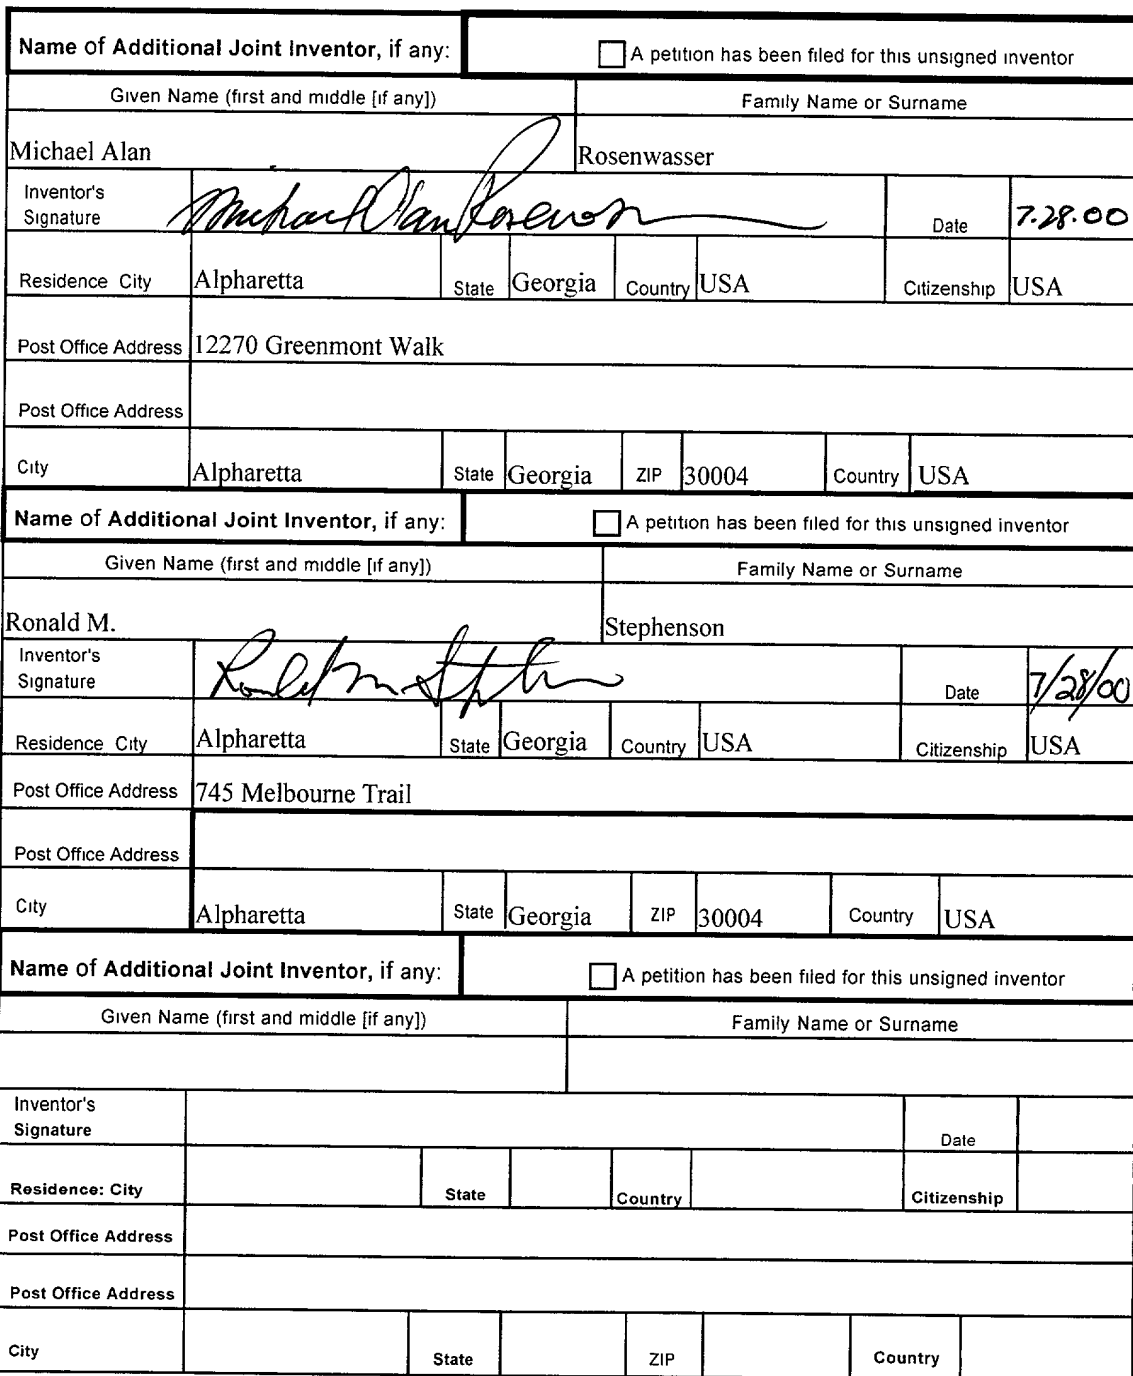 Name of Additional Joint Inventor, if any: A petition has been filed for this unsigned inventor
Given Name (first and middle [if any]) Family Name or Surname
Michael Alan Rosenwasser
Inventor's
Signature Date 7.28.00
Residence City Alpharetta State Georgia Country USA Citizenship USA
Post Office Address 12270 Greenmont Walk
Post Office Address
City Alpharetta State Georgia ZIP 30004 Country USA
Name of Additional Joint Inventor, if any: A petition has been filed for this unsigned inventor
Given Name (first and middle [if any]) Family Name or Surname
Ronald M. Stephenson
Inventor's
Signature Date 7/28/00
Residence City Alpharetta State Georgia Country USA Citizenship USA
Post Office Address 745 Melbourne Trail
Post Office Address
City Alpharetta State Georgia ZIP 30004 Country USA
Name of Additional Joint Inventor, if any: A petition has been filed for this unsigned inventor
Given Name (first and middle [if any]) Family Name or Surname
Inventor's
Signature Date
Residence: City State Country Citizenship
Post Office Address
Post Office Address
City State ZIP Country